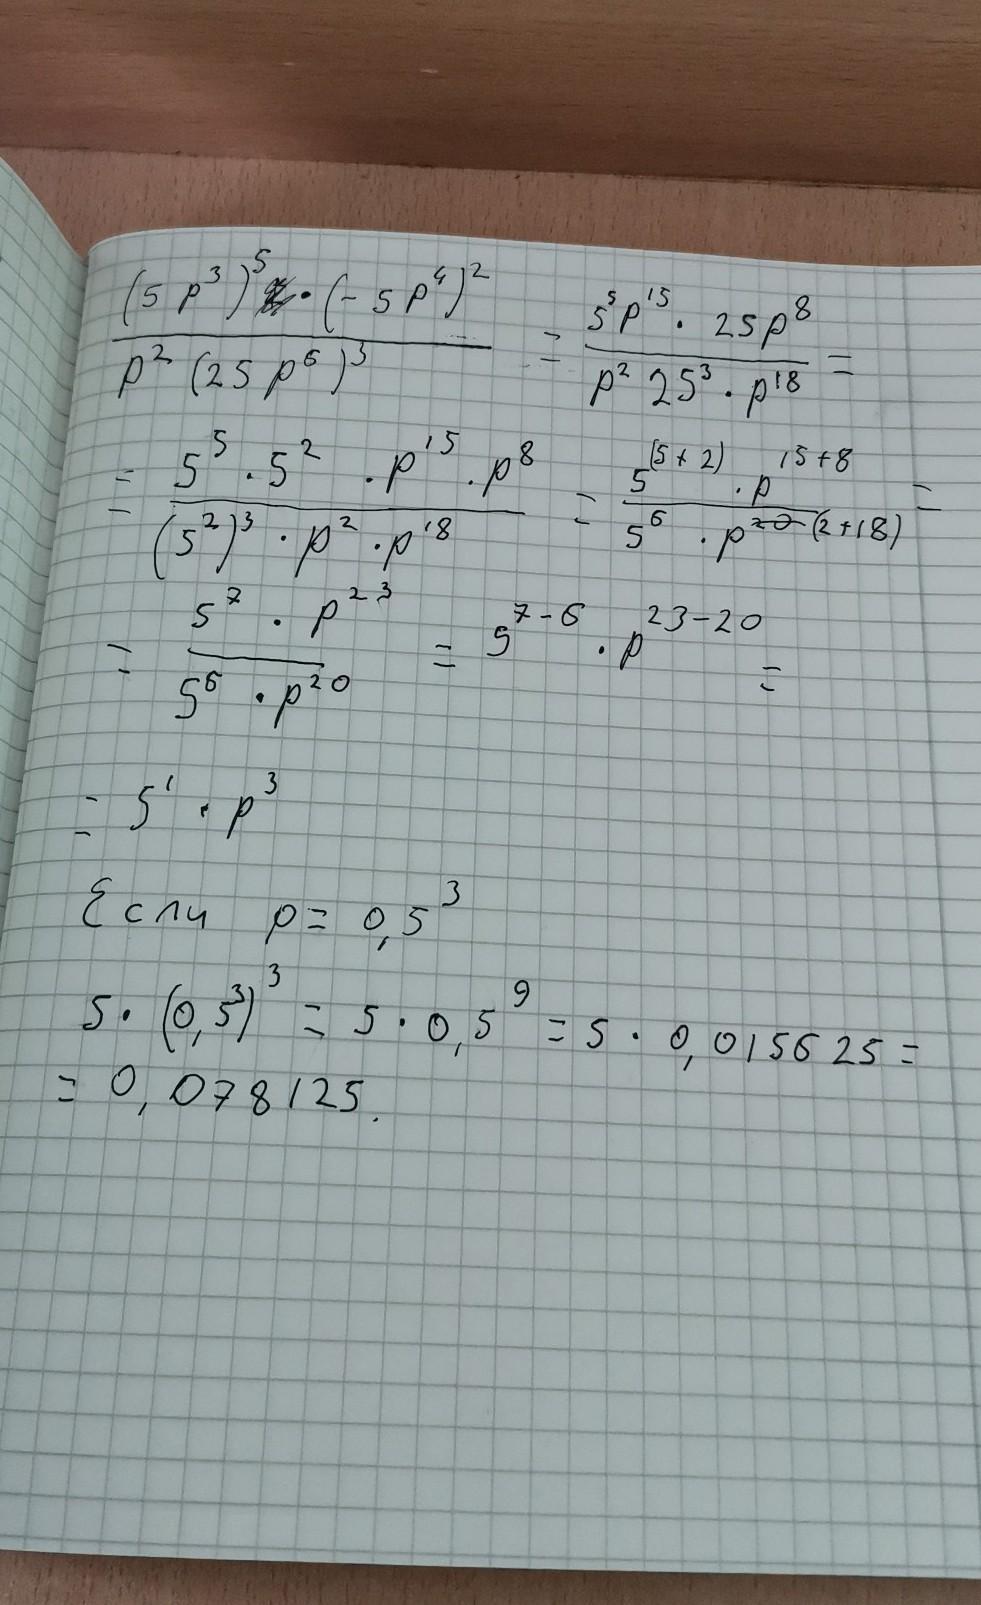 (5p³)⁵ · (-5p⁴)² / p² (25p⁶)³ = 5⁵p¹⁵ · 25p⁸ / p² 25³ · p¹⁸ =
= 5⁵ · 5² · p¹⁵ · p⁸ / (5²)³ · p² · p¹⁸ = 5⁽⁵⁺²⁾ · p¹⁵⁺⁸ / 5⁶ · p⁽²⁺¹⁸⁾ =
= 5⁷ · p²³ / 5⁶ · p²⁰ = 5⁷⁻⁶ · p²³⁻²⁰ =
= 5¹ · p³
Если p = 0,5³
5 · (0,5³)³ = 5 · 0,5⁹ = 5 · 0,015625 =
= 0,078125.